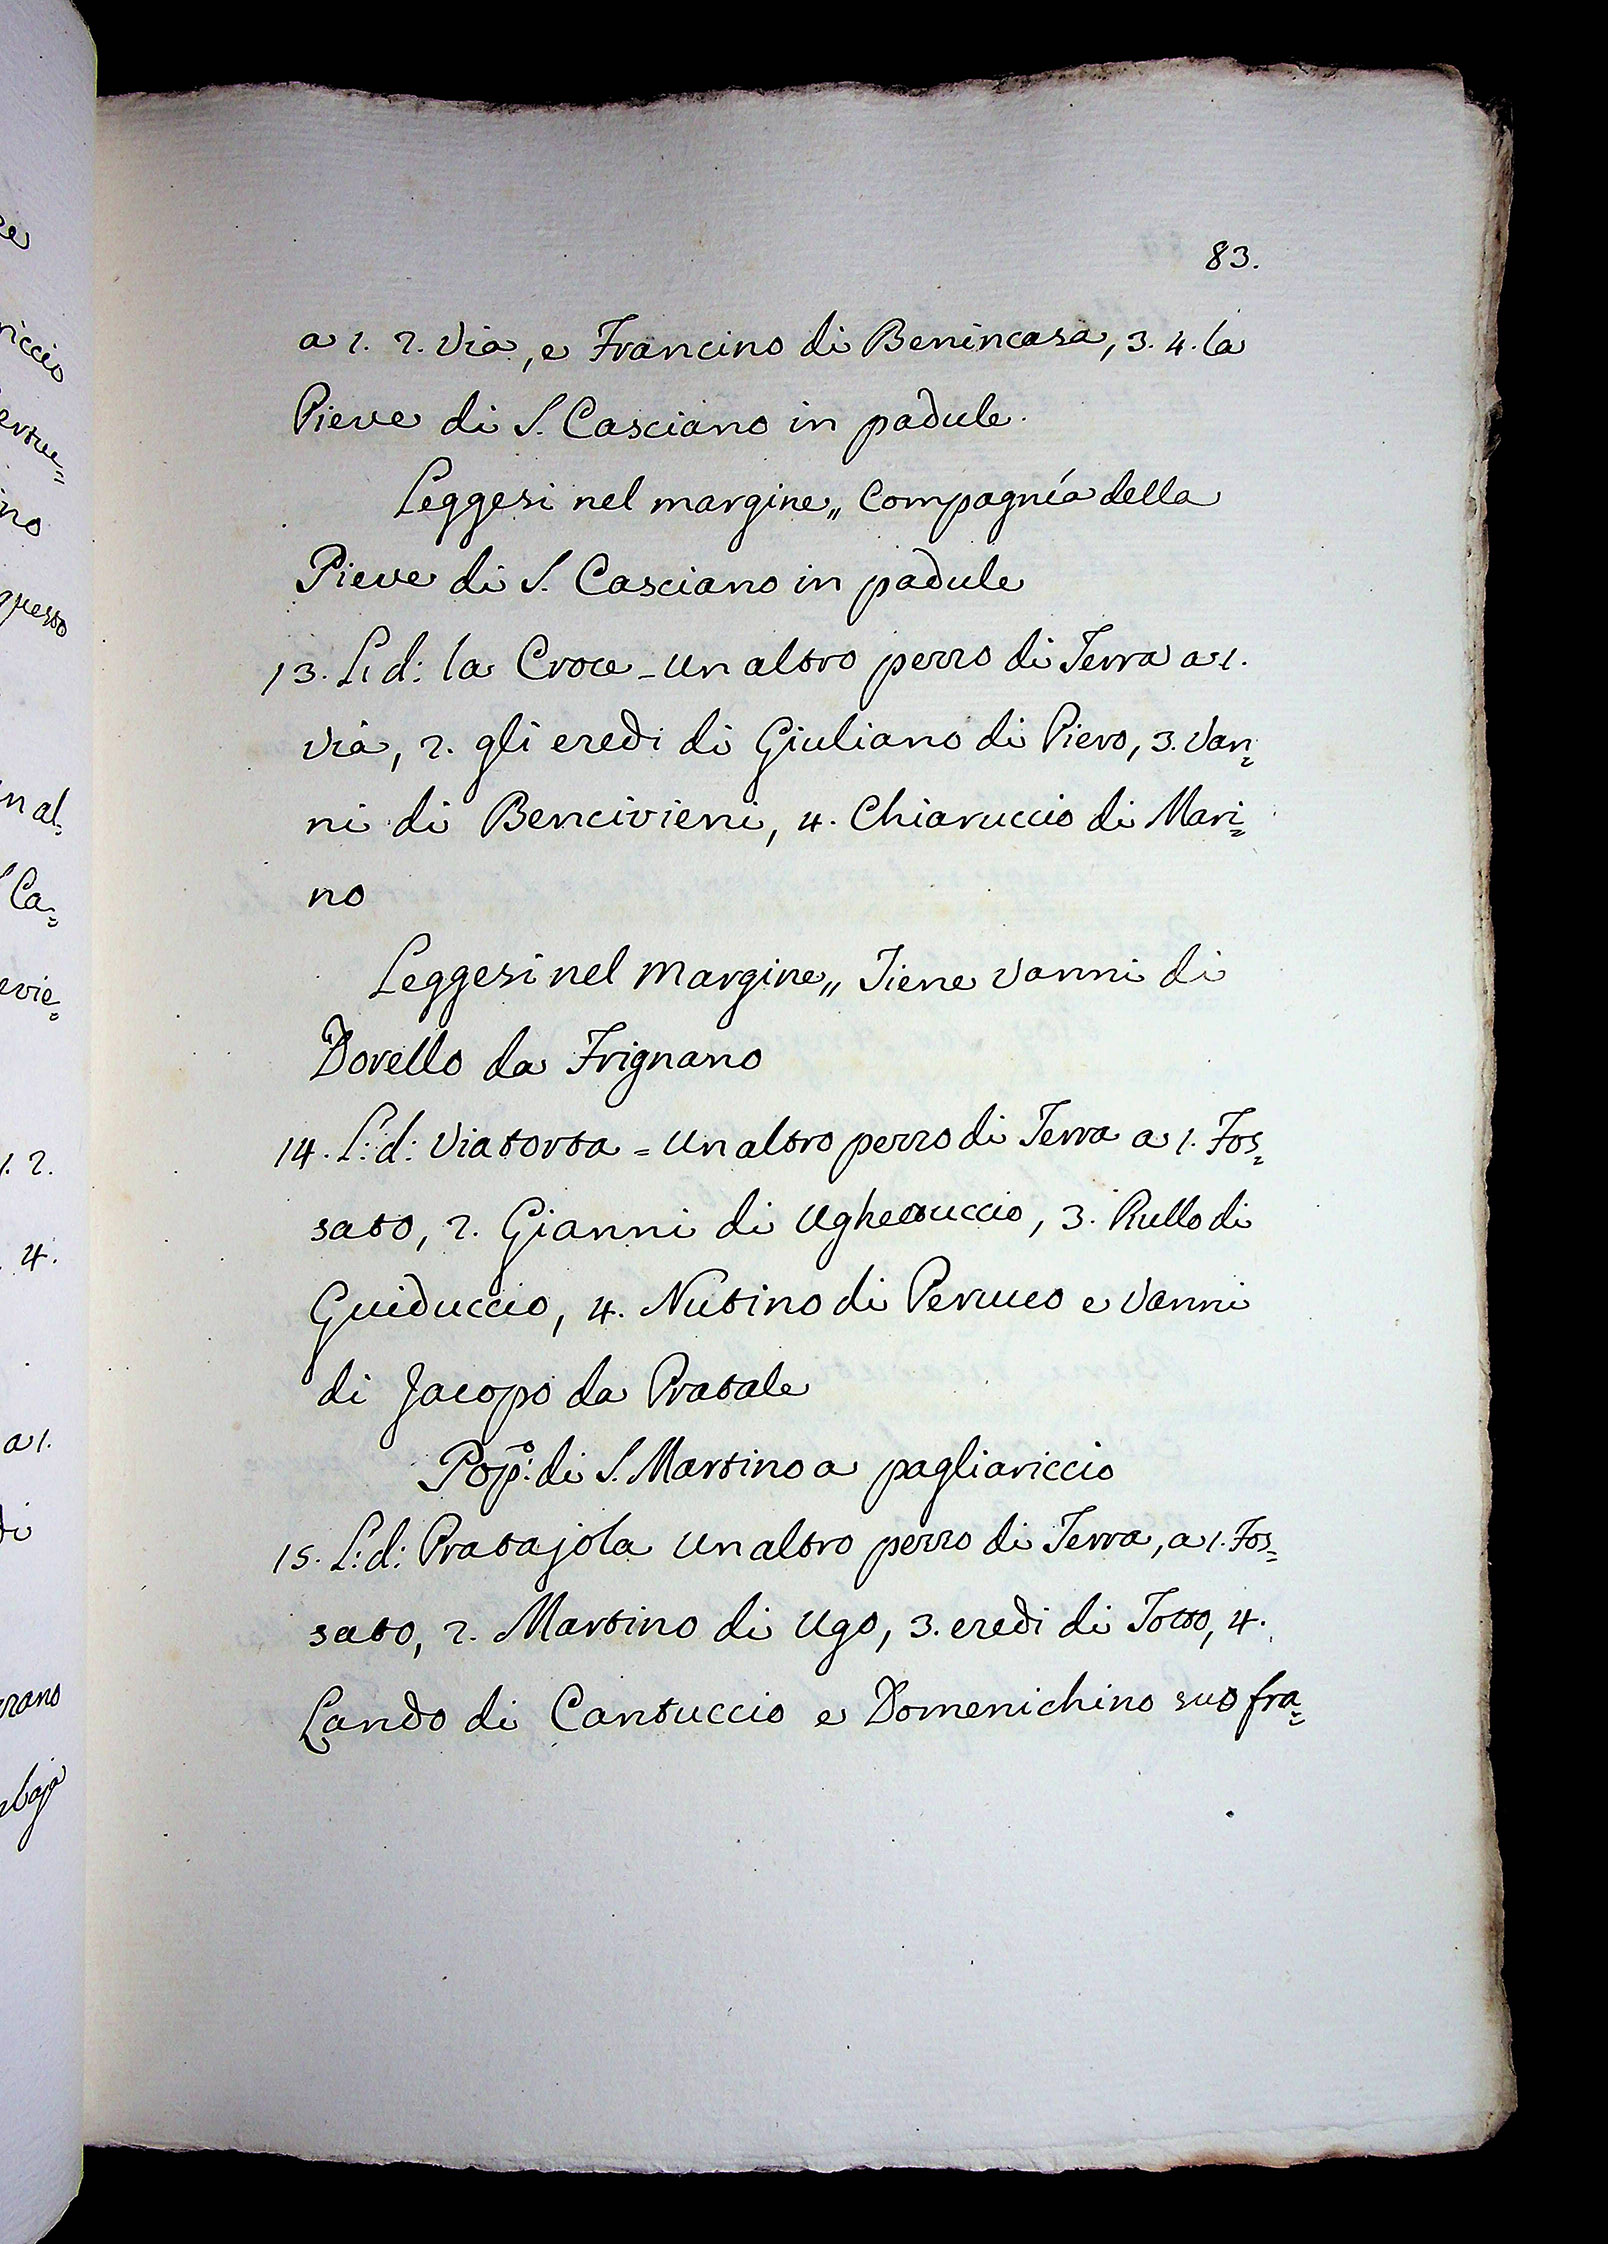 83.
a 1. 2. via, e Francino di Benincasa, 3. 4. la
Pieve di S. Casciano in padule.
Leggesi nel margine„ Compagnía della
Pieve di S. Casciano in padule
13. L: d: la Croce - un altro pezzo di Terra a 1.
via, 2. gli eredi di Giuliano di Piero, 3. Van=
ni di Bencivieni, 4. Chiaruccio di Mari=
no
Leggesi nel margine„ Tiene Vanni di
Dorello da Frignano
14. L: d: Viatorta = un altro pezzo di Terra a 1. Fos=
sato, 2. Gianni di Ughettuccio, 3. Rullo di
Guiduccio, 4. Nutino di e Vanni
di Jacopo da Pratale
Pop.º di S. Martino a pagliariccio
15. L: d: Pratajola un altro pezzo di Terra, a 1. Fos=
sato, 2. Martino di Ugo, 3. eredi di Totto, 4.
Lando di Cantuccio e Domenichino suo fra=